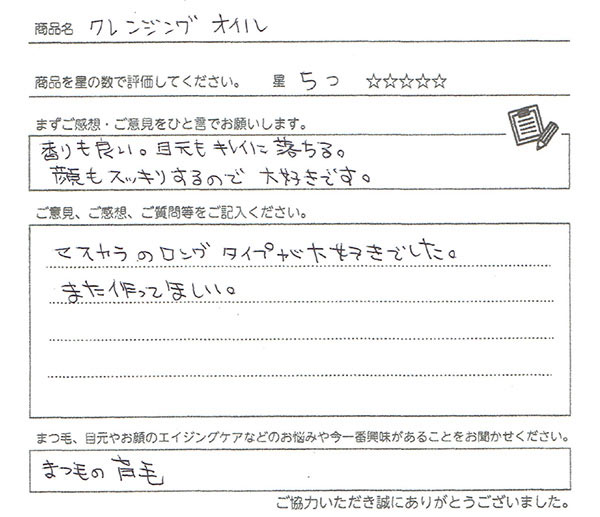 商品名 クレンジング オイル
商品を星の数で評価してください。 星 5つ ☆☆☆☆☆
まずご感想・ご意見をひと言でお願いします。
香りも良い。目元もキレイに落ちる。
顔もスッキリするので 大好きです。
ご意見、ご感想、ご質問等をご記入ください。
マスカラのロングタイプが大好きでした。
また作ってほしい。
まつ毛、目元やお顔のエイジングケアなどのお悩みや今一番興味があることをお聞かせください。
まつ毛の育毛
ご協力いただき誠にありがとうございました。